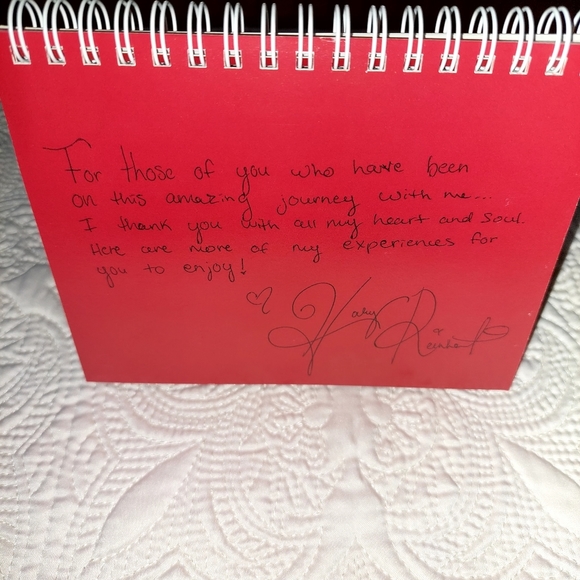 For those of you who have been
on this amazing journey with me...
I thank you with all my heart and soul.
Here are more of my experiences for
you to enjoy!